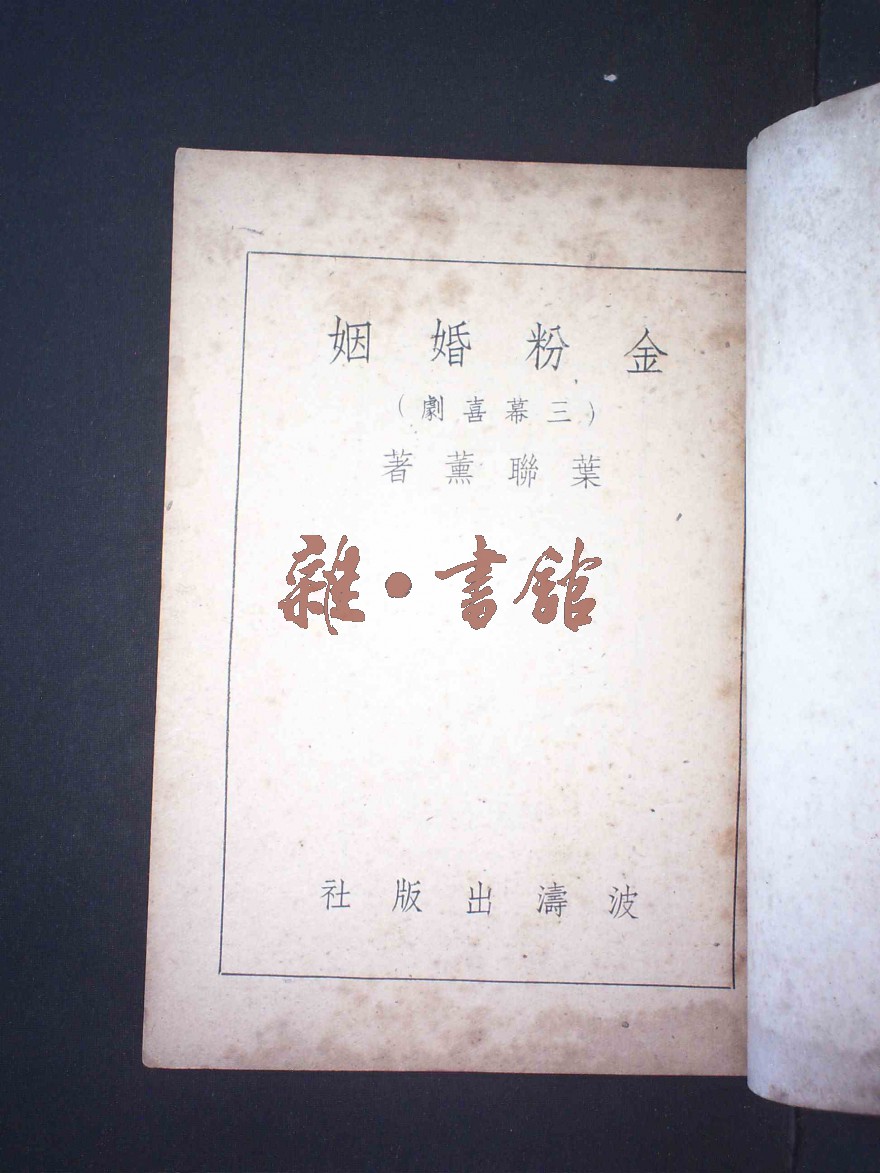 金粉婚姻
(三幕喜劇)
葉聯薰著
雜·書館
波濤出版社